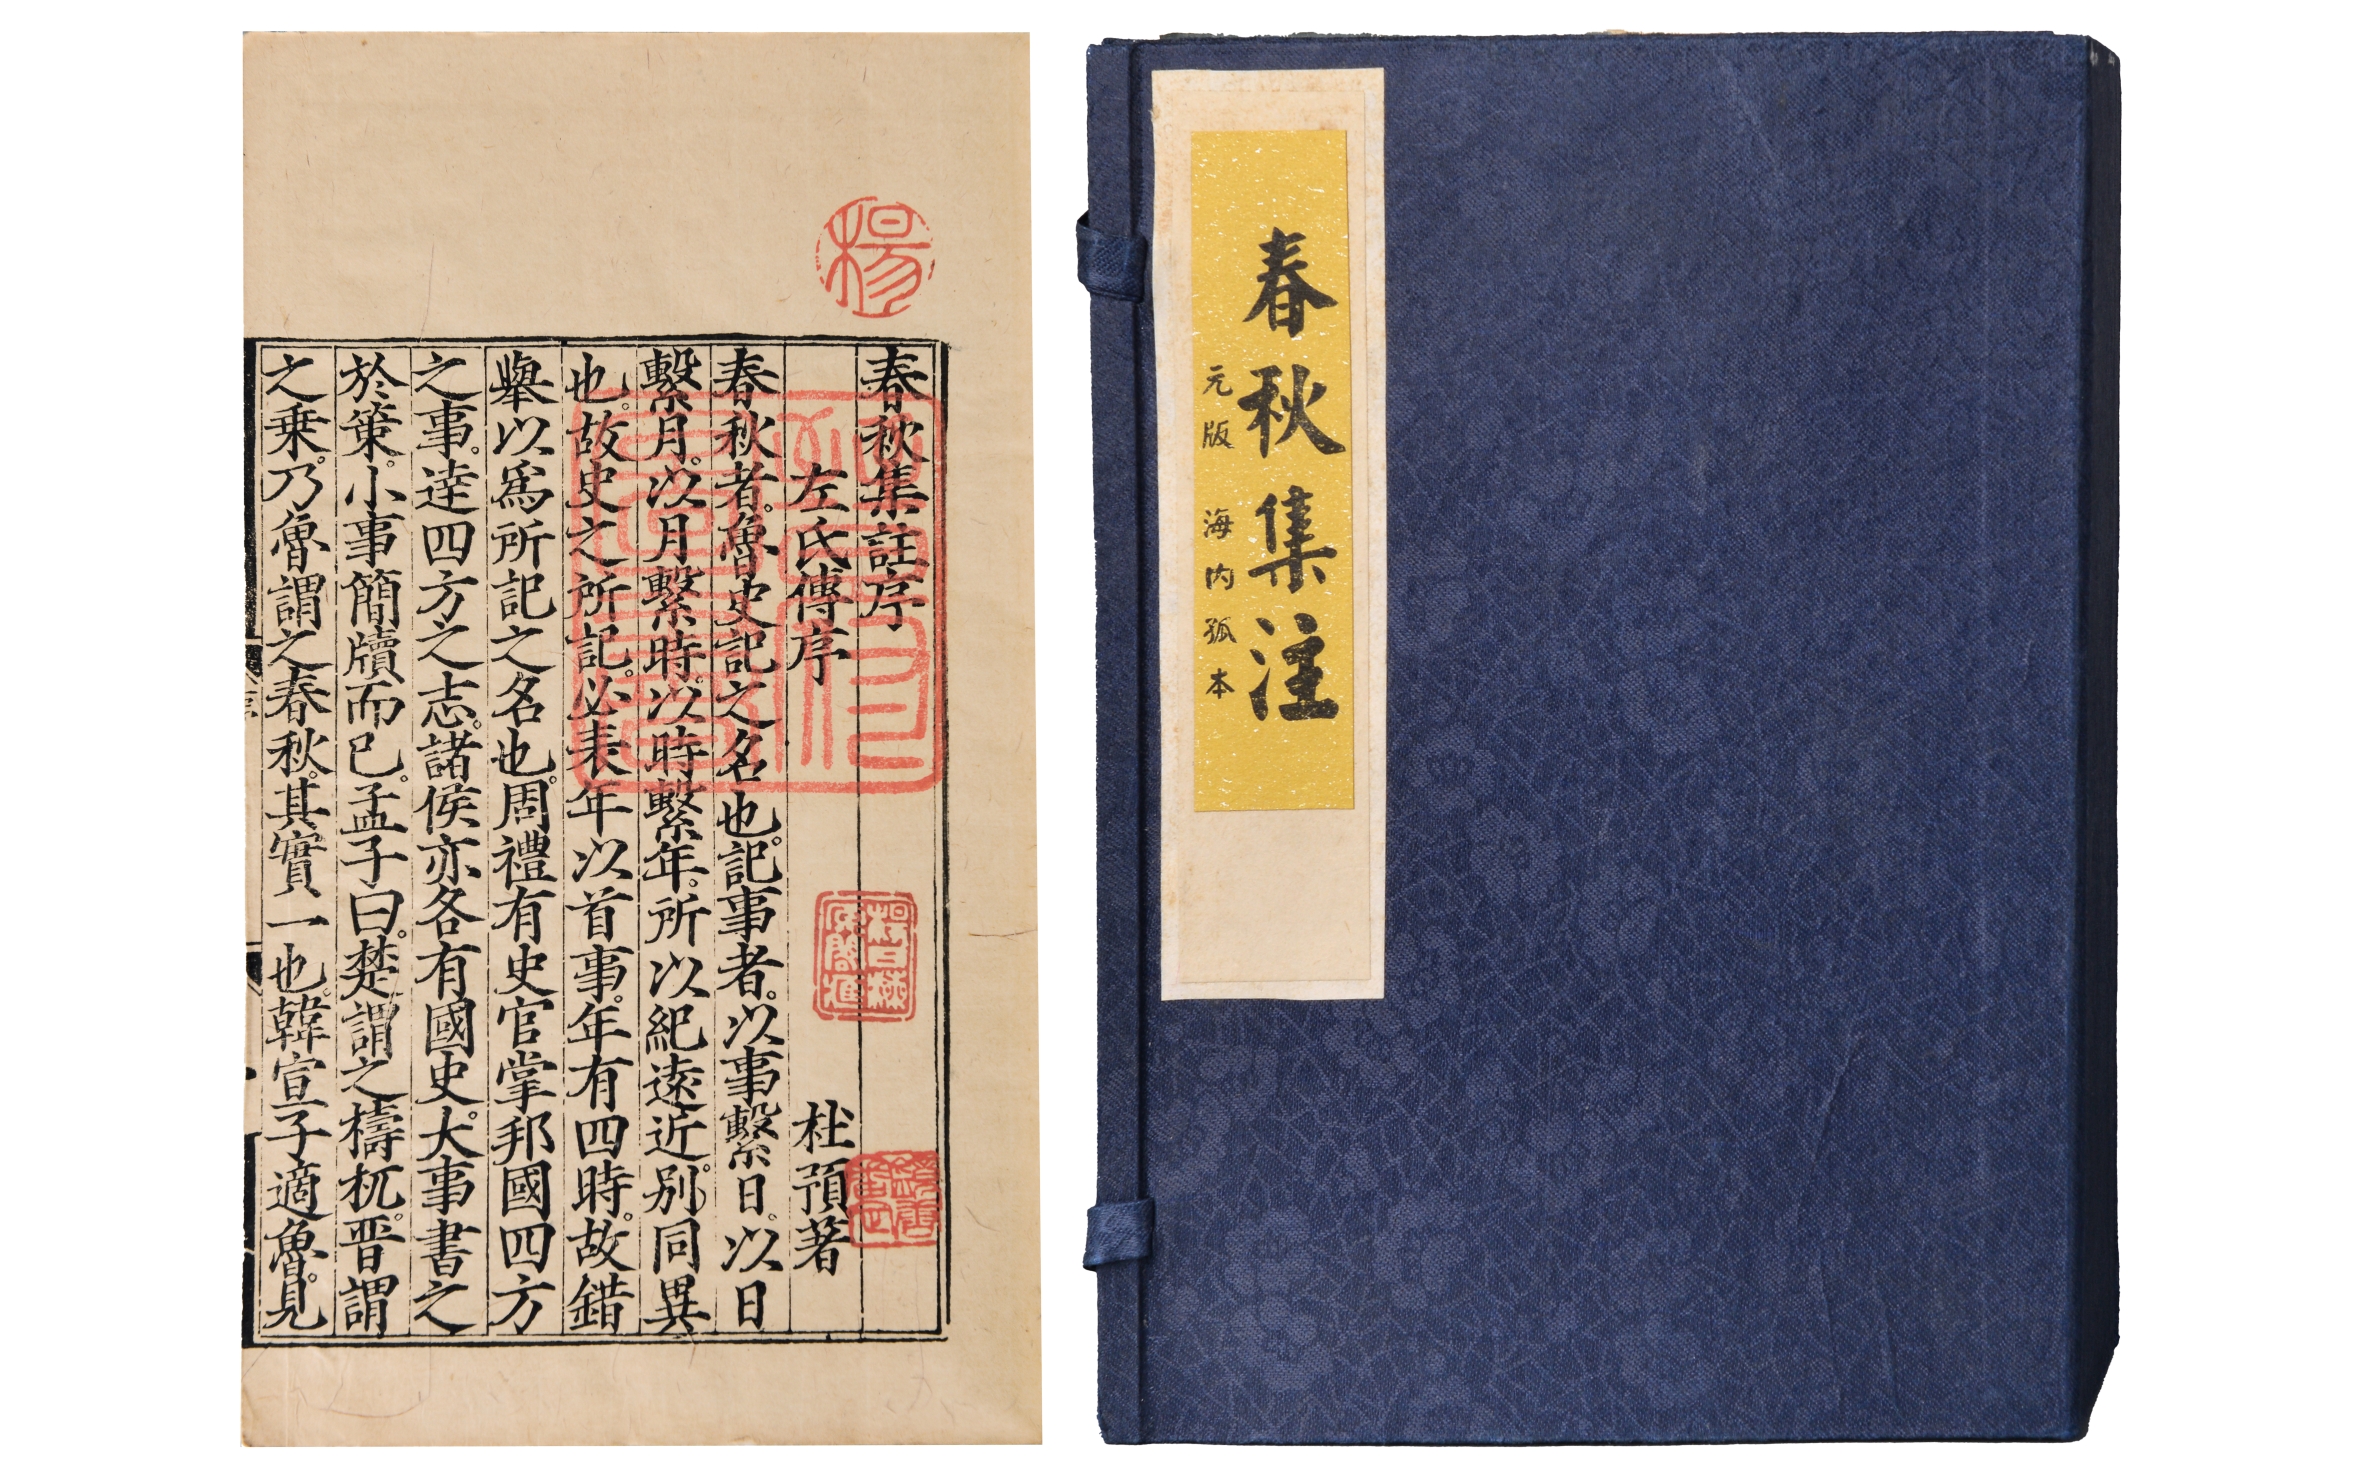 楊
春秋集註序
左氏傳序 杜預著
春秋者。魯史記之名也。記事者。以事繫日。以日
繫月。以月繫時。以時繫年。所以紀遠近。別同異
也。故史之所記。必表年以首事。年有四時。故錯
舉以爲所記之名也。周禮有史官掌邦國四方
之事。達四方之志。諸侯亦各有國史。大事書之
於策。小事簡牘而已。孟子曰。楚謂之檮杌。晋謂
之乗。乃魯謂之春秋。其實一也。韓宣子適魯。見
春秋集注
元版 海内孤本